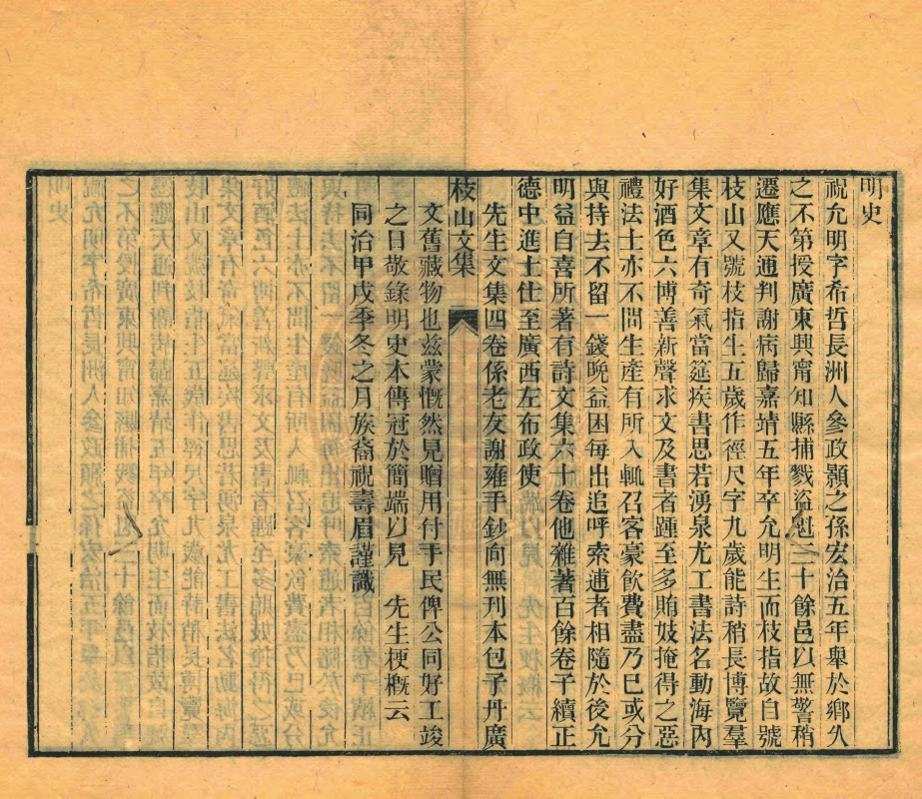 明史
祝允明字希哲長洲人參政顥之孫宏治五年舉於鄉久
之不第授廣東興甯知縣捕戮盜魁三十餘邑以無警稍
遷應天通判謝病歸嘉靖五年卒允明生而枝指故自號
枝山又號枝指生五歲作徑尺字九歲能詩稍長博覽羣
集文章有奇氣當筵疾書思若湧泉尤工書法名動海內
好酒色六博善新聲求文及書者踵至多賄妓掩得之惡
禮法士亦不問生產有所入輒召客豪飲費盡乃已或分
與持去不留一錢晚益困每出追呼索逋者相隨於後允
明益自喜所著有詩文集六十卷他雜著百餘卷子續正
德中進士仕至廣西左布政使
先生文集四卷係老友謝雍手鈔向無刊本包子丹廣
枝山文集
文舊藏物也茲蒙慨然見贈用付手民俾公同好工竣
之日敬錄明史本傳冠於簡端以見　先生梗概云
同治甲戌季冬之月族裔祝壽眉謹識